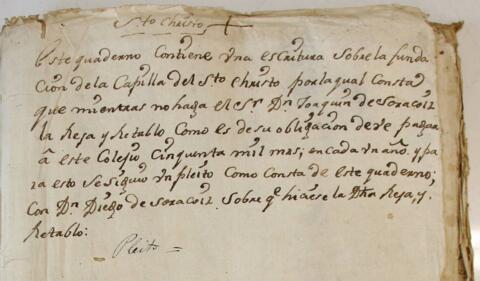 S.to Christo,
Este quaderno Contiene vna escritura Sobre la funda
ción de la Capilla del S.to Christo por la qual Consta
que mientras no haga el S.r D.n Joaquin de Soracoiz
la Reja y Retablo Como es de su obligacion deve pagar
a este Colejio Cinquenta mil mas; en cada vn año. y pa
ra esto se siguio vn pleito como Consta de este quaderno;
Con D.n Diego de Soracoiz Sobre q.e hiciese la Dha Reja, y
Retablo:
Pleito =